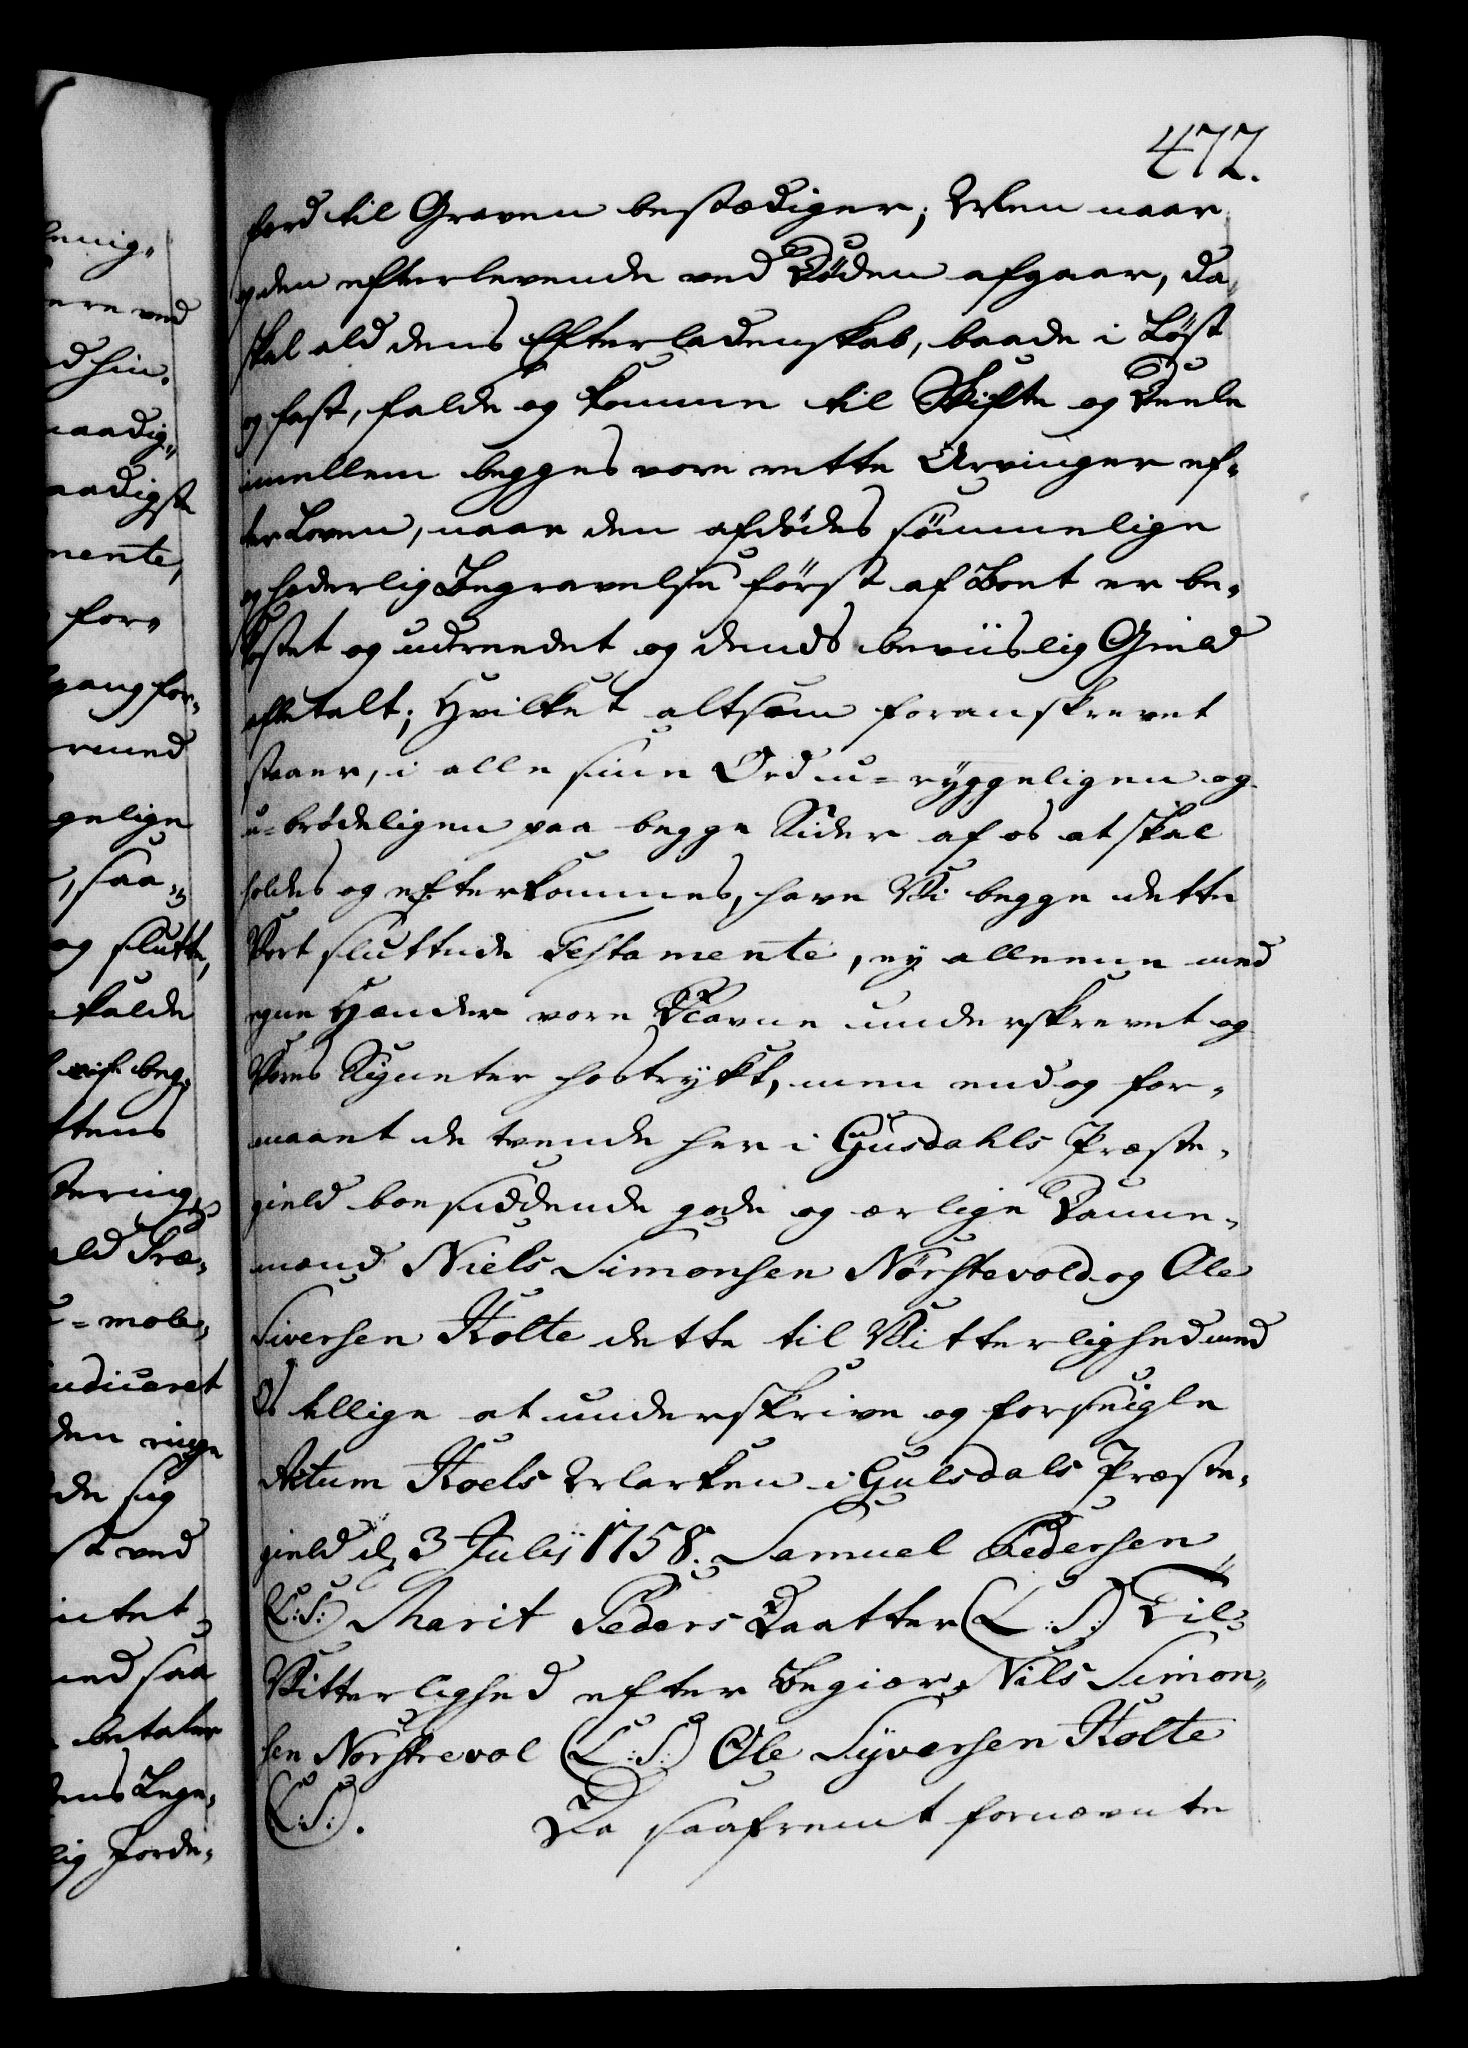 472.
ferd til Graven bestædiger; Men naar
og den efterlevende ved Døden afgaar, da
skal ald dens Efterladenskab, baade i Løst
og fast, falde og komme til Skifte og Deele
imellem begges vore rette Arvinger ef-
ter Loven, naar den afdødes sømmelige
og hæderlig Begravelse først af Boet er be-
kostet og udreedet og dends beviislig Gield
afbetalt; Hvilket altsom foranskrevet
staaer, i alle sine Ord u-ryggeligen og
u-brødeligen paa begge Sider af os at skal
holdes og efterkommes, have Vi begge dette
Vort sluttede Testamente, ey alleene med
egne Hænder vore Navne underskrevet og
Vores Signeter hostrykt, men end og for-
maaet de tvende her i Gusdahls Præste-
gield boesiddende gode og ærlige Danne-
mænd Niels Simonsen Nørstevold og Ole
Siversen Kolte dette til Vitterlighed med
Os tillige at underskrive og forseigle
Actum Koels Marken i Gulsdals Præste-
gield d. 3 Julij 1758. Samuel Pedersen
(L:S:) Marit Peders Daatter (L:S:) Til
Vitterlighed efter Begiær, Nils Simon-
sen Norstrevol (L:S:) Ole Syversen Kolte
(L:S:). Da saafremt fornævnte
lenig-
ere ved
ed hin-
naadig-
naadigst
mente,
for-
gang for-
rmed
gelige
, saa-
og slutte,
kalde
beg-
ttens
tering
ald Præ-
u-mole-
udiceret
den ringe
de sig
st ved
intet-
ned saa
betaler
dens Begr-
lig Forde-